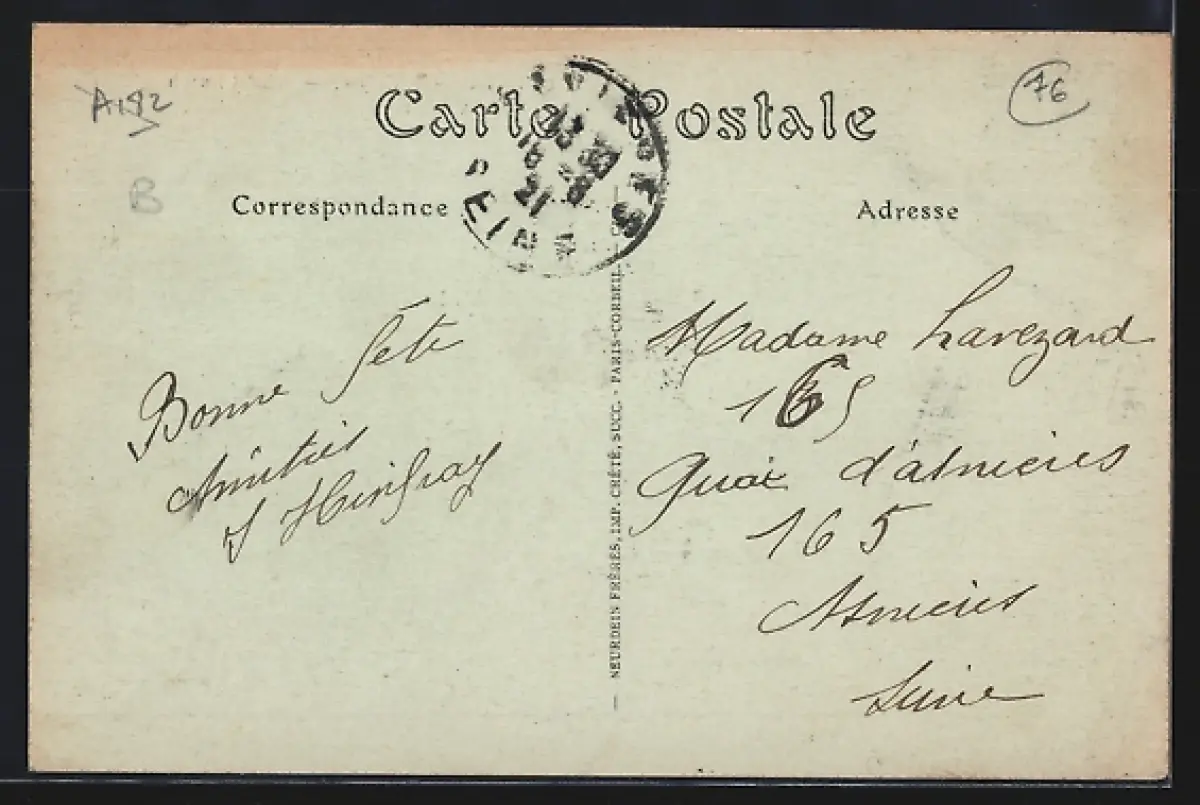 A192
76
Carte Postale
B
Correspondance
Adresse
16
21
Bonne fête
Amitiés
Madame Lavezard
165
Quai d'asnieres
165
Asnieres
Seine
— NEURDEIN FRÈRES, IMP. CRÉTÉ, SUCC. - PARIS-CORBEIL. —